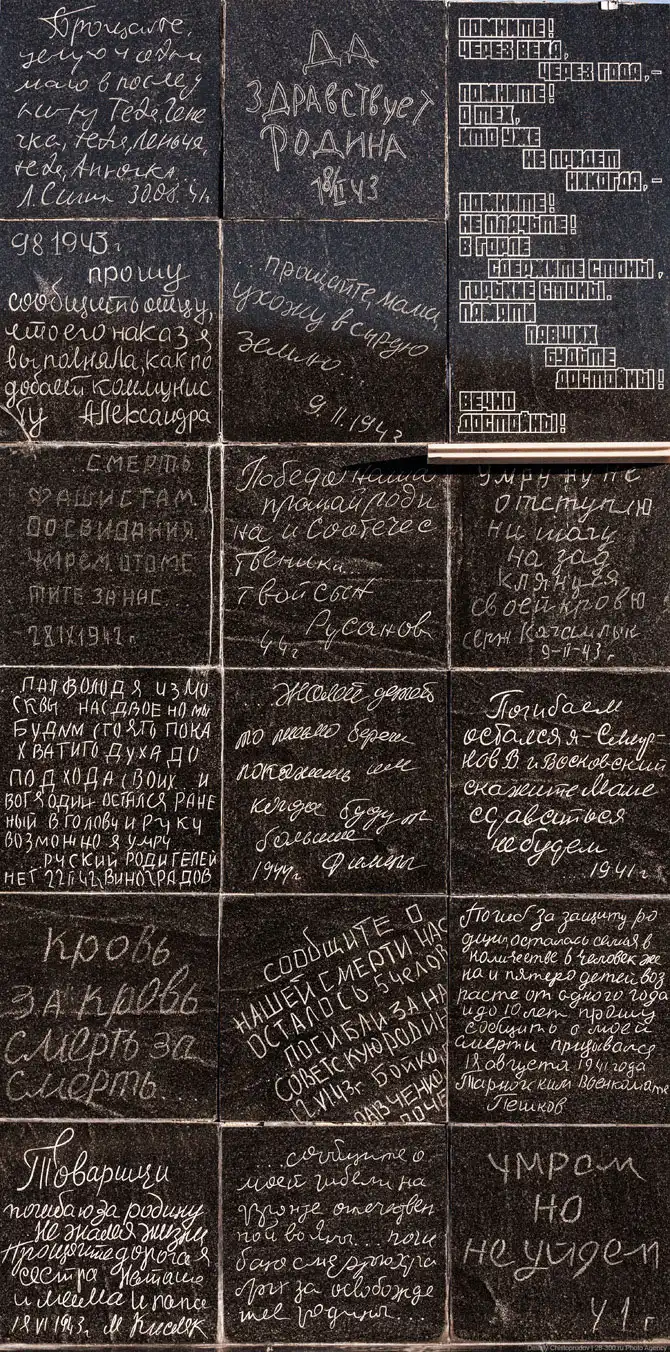 Прощайте,
целую ч один
мало в послед
ки-ку Тебя, Гене
чка, тебя, Леньча,
тебя, Анночка...
Л. Силин 30.08.41г
ДА
ЗДРАВСТВУЕТ
РОДИНА
18/II 43
ПОМНИТЕ!
ЧЕРЕЗ ВЕКА,
ЧЕРЕЗ ГОДА,-
ПОМНИТЕ!
О ТЕХ,
КТО УЖЕ
НЕ ПРИДЕТ
НИКОГДА,-
ПОМНИТЕ!
НЕ ПЛАЧЬТЕ!
В ГОРЛЕ
СДЕРЖИТЕ СТОНЫ,
ГОРЬКИЕ СТОНЫ.
ПАМЯТИ
ПАВШИХ
БУДЬТЕ
ДОСТОЙНЫ!
ВЕЧНО
ДОСТОЙНЫ!
98 1943г.
прошу
сообщить отцу,
что его наказ я
выполняла, как по
добает коммунис
ту Александра
...прощайте, мама,
ухожу в сырую
землю...
9.II.1943
...СМЕРТЬ
ФАШИСТАМ.
ДОСВИДАНИЯ.
УМРЕМ. ОТОМС
ТИТЕ ЗА НАС...
28 IX 1942г.
Победа наша
прощай роди
на и соотечес
твеники...
твой сын
Русанов
44г
Умру ну не
отступлю
ни шагу
на зад
клянуся
своей кровю
серж Качамлык
9-II-43г.
ПАЛ ВОЛОДЯ ИЗ МО
СКВЫ НАС ДВОЕ НО МЫ
БУДЫМ СТОЯТЬ ПОКА
ХВАТИТ ДУХА ДО
ПОДХОДА СВОИХ И
ВОТ Я ОДИН ОСТАЛСЯ РАНЕ
НЫЙ В ГОЛОВУ И РУКУ
ВОЗМОЖНО Я УМРУ
...РУСКИЙ РОДИТЕЛЕЙ
НЕТ 22 II 42 ВИНОГРАДОВ
...Жалей детей
то письмо береги
покажеш им
когда будут
большие
1944г.
Погибаем
остался я-Смир-
нов В и Восковский
скажите Маме
сдаваться
не будем
...1941г
КРОВЬ
ЗА КРОВЬ
СМЕРТЬ ЗА
СМЕРТЬ...
СООБЩИТЕ О
НАШЕЙ СМЕРТИ НАС
ОСТАЛОСЬ 5 ЧЕЛОВ
ПОГИБЛИ ЗА НА
СОВЕТСКУЮ РОДИН
12.VI 43г. БОЙКО
РАВЧЕНКО
Погиб за защиту ро
дины осталась семия в
количестве 6 человек же
на и пятеро детей воз
расте от одного года
и до 10 лет прошу
сообщить о моей
смерти призывался
18 августа 1941 года
Тарногским Военкомате
Пешков
Товарищи
погибаю за родину
Не жалея жизни
Прощайте дорогая
сестра Наташа
и мама и папа
18 VI 1943г. М Кисляк
...сообщите о
моей гибели на
фронте отечествен
ной войны... поги
баю смертью хра
брых за освобожде
ние родины...
УМРОМ
НО
НЕ УЙДЕМ
41г
Dmitry Chistoprudov | 28-300.ru Photo Agency